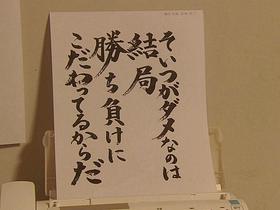 そいつがダメなのは
結局
勝ち負けに
こだわってるからだ